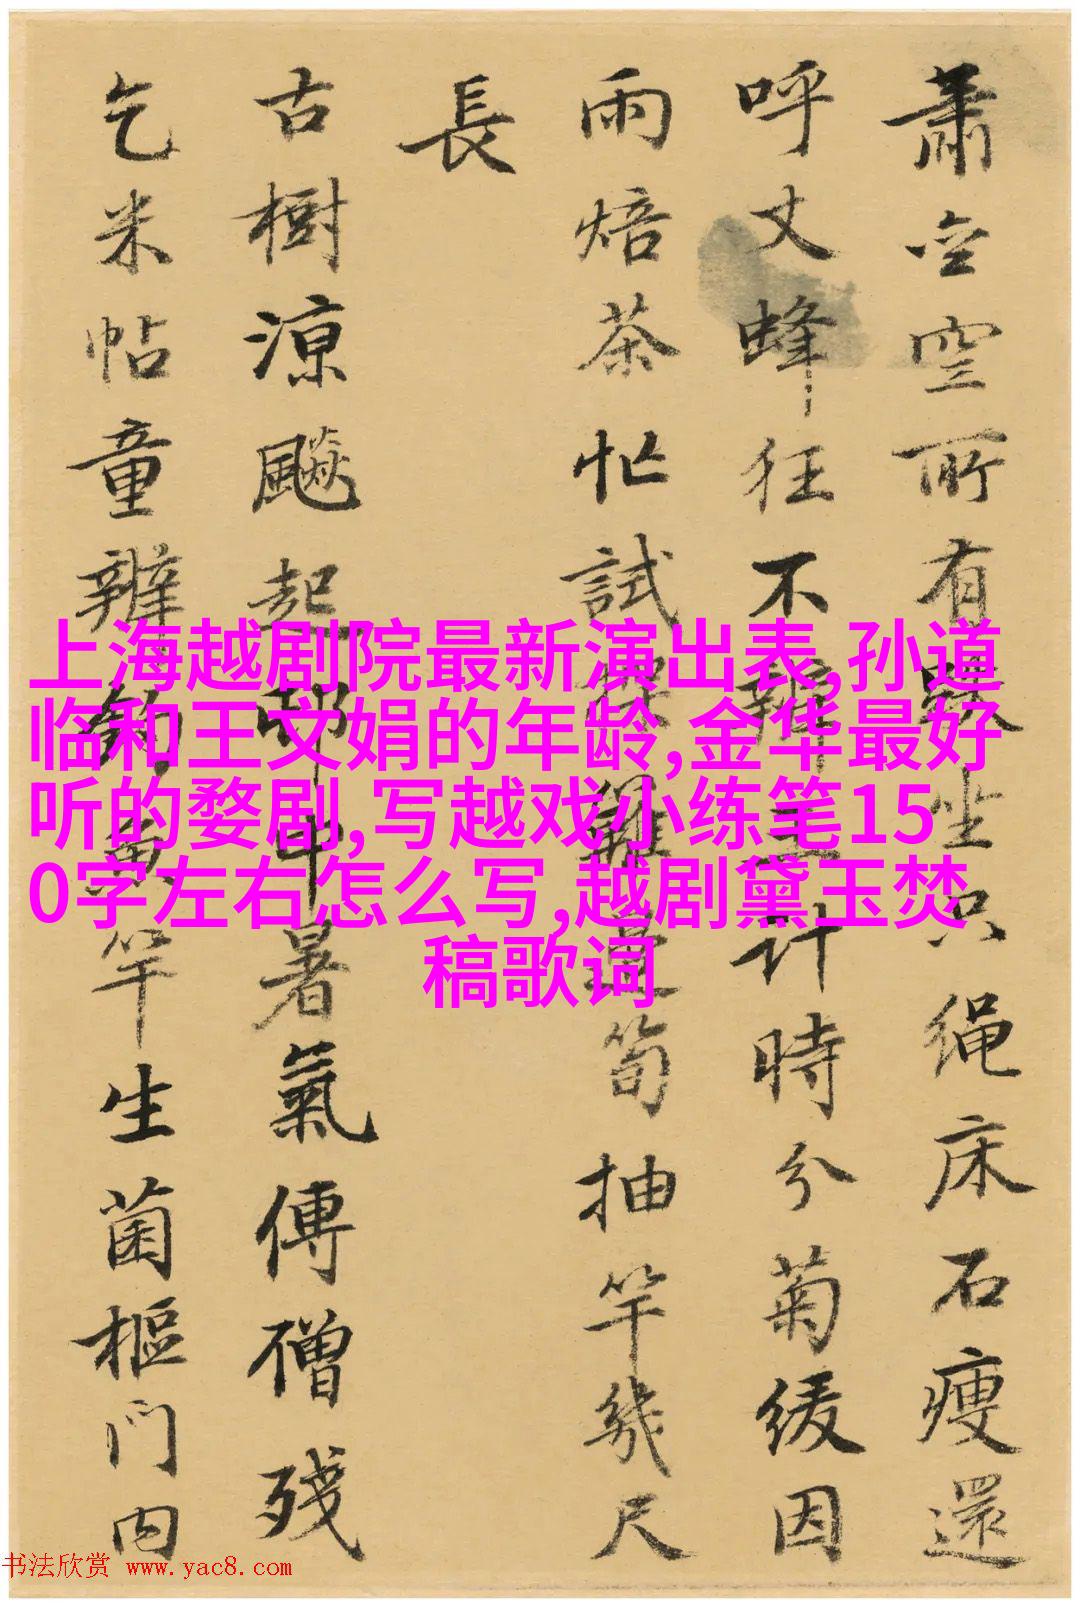 蕭空空所有跌坐只绳床石瘦還
呼丈蜂狂不辨 計時分菊緩因
雨焙茶忙試 邊筍抽竿幾尺
長
古樹涼飈起 中暑氣傳僧殘
乞米帖童辦 黄竿生菌樞門内
上海越剧院最新演出表,孙道
临和王文娟的年龄,金华最好
听的婺剧,写越戏小练笔15
0字左右怎么写,越剧黛玉焚
稿歌词
书法欣赏 www.yac8.com